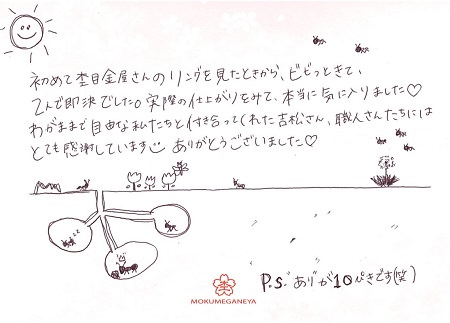 初めて杢目金屋さんのリングを見たときから、ビビっときて、
2人で即決でした。実際の仕上がりをみて、本当に気に入りました♡
わがままで自由な私たちと付き合ってくれた吉松さん、職人さんたちには
とても感謝しています ありがとうございました♡
P.S. ありが10ぴきです(笑)
MOKUMEGANEYA